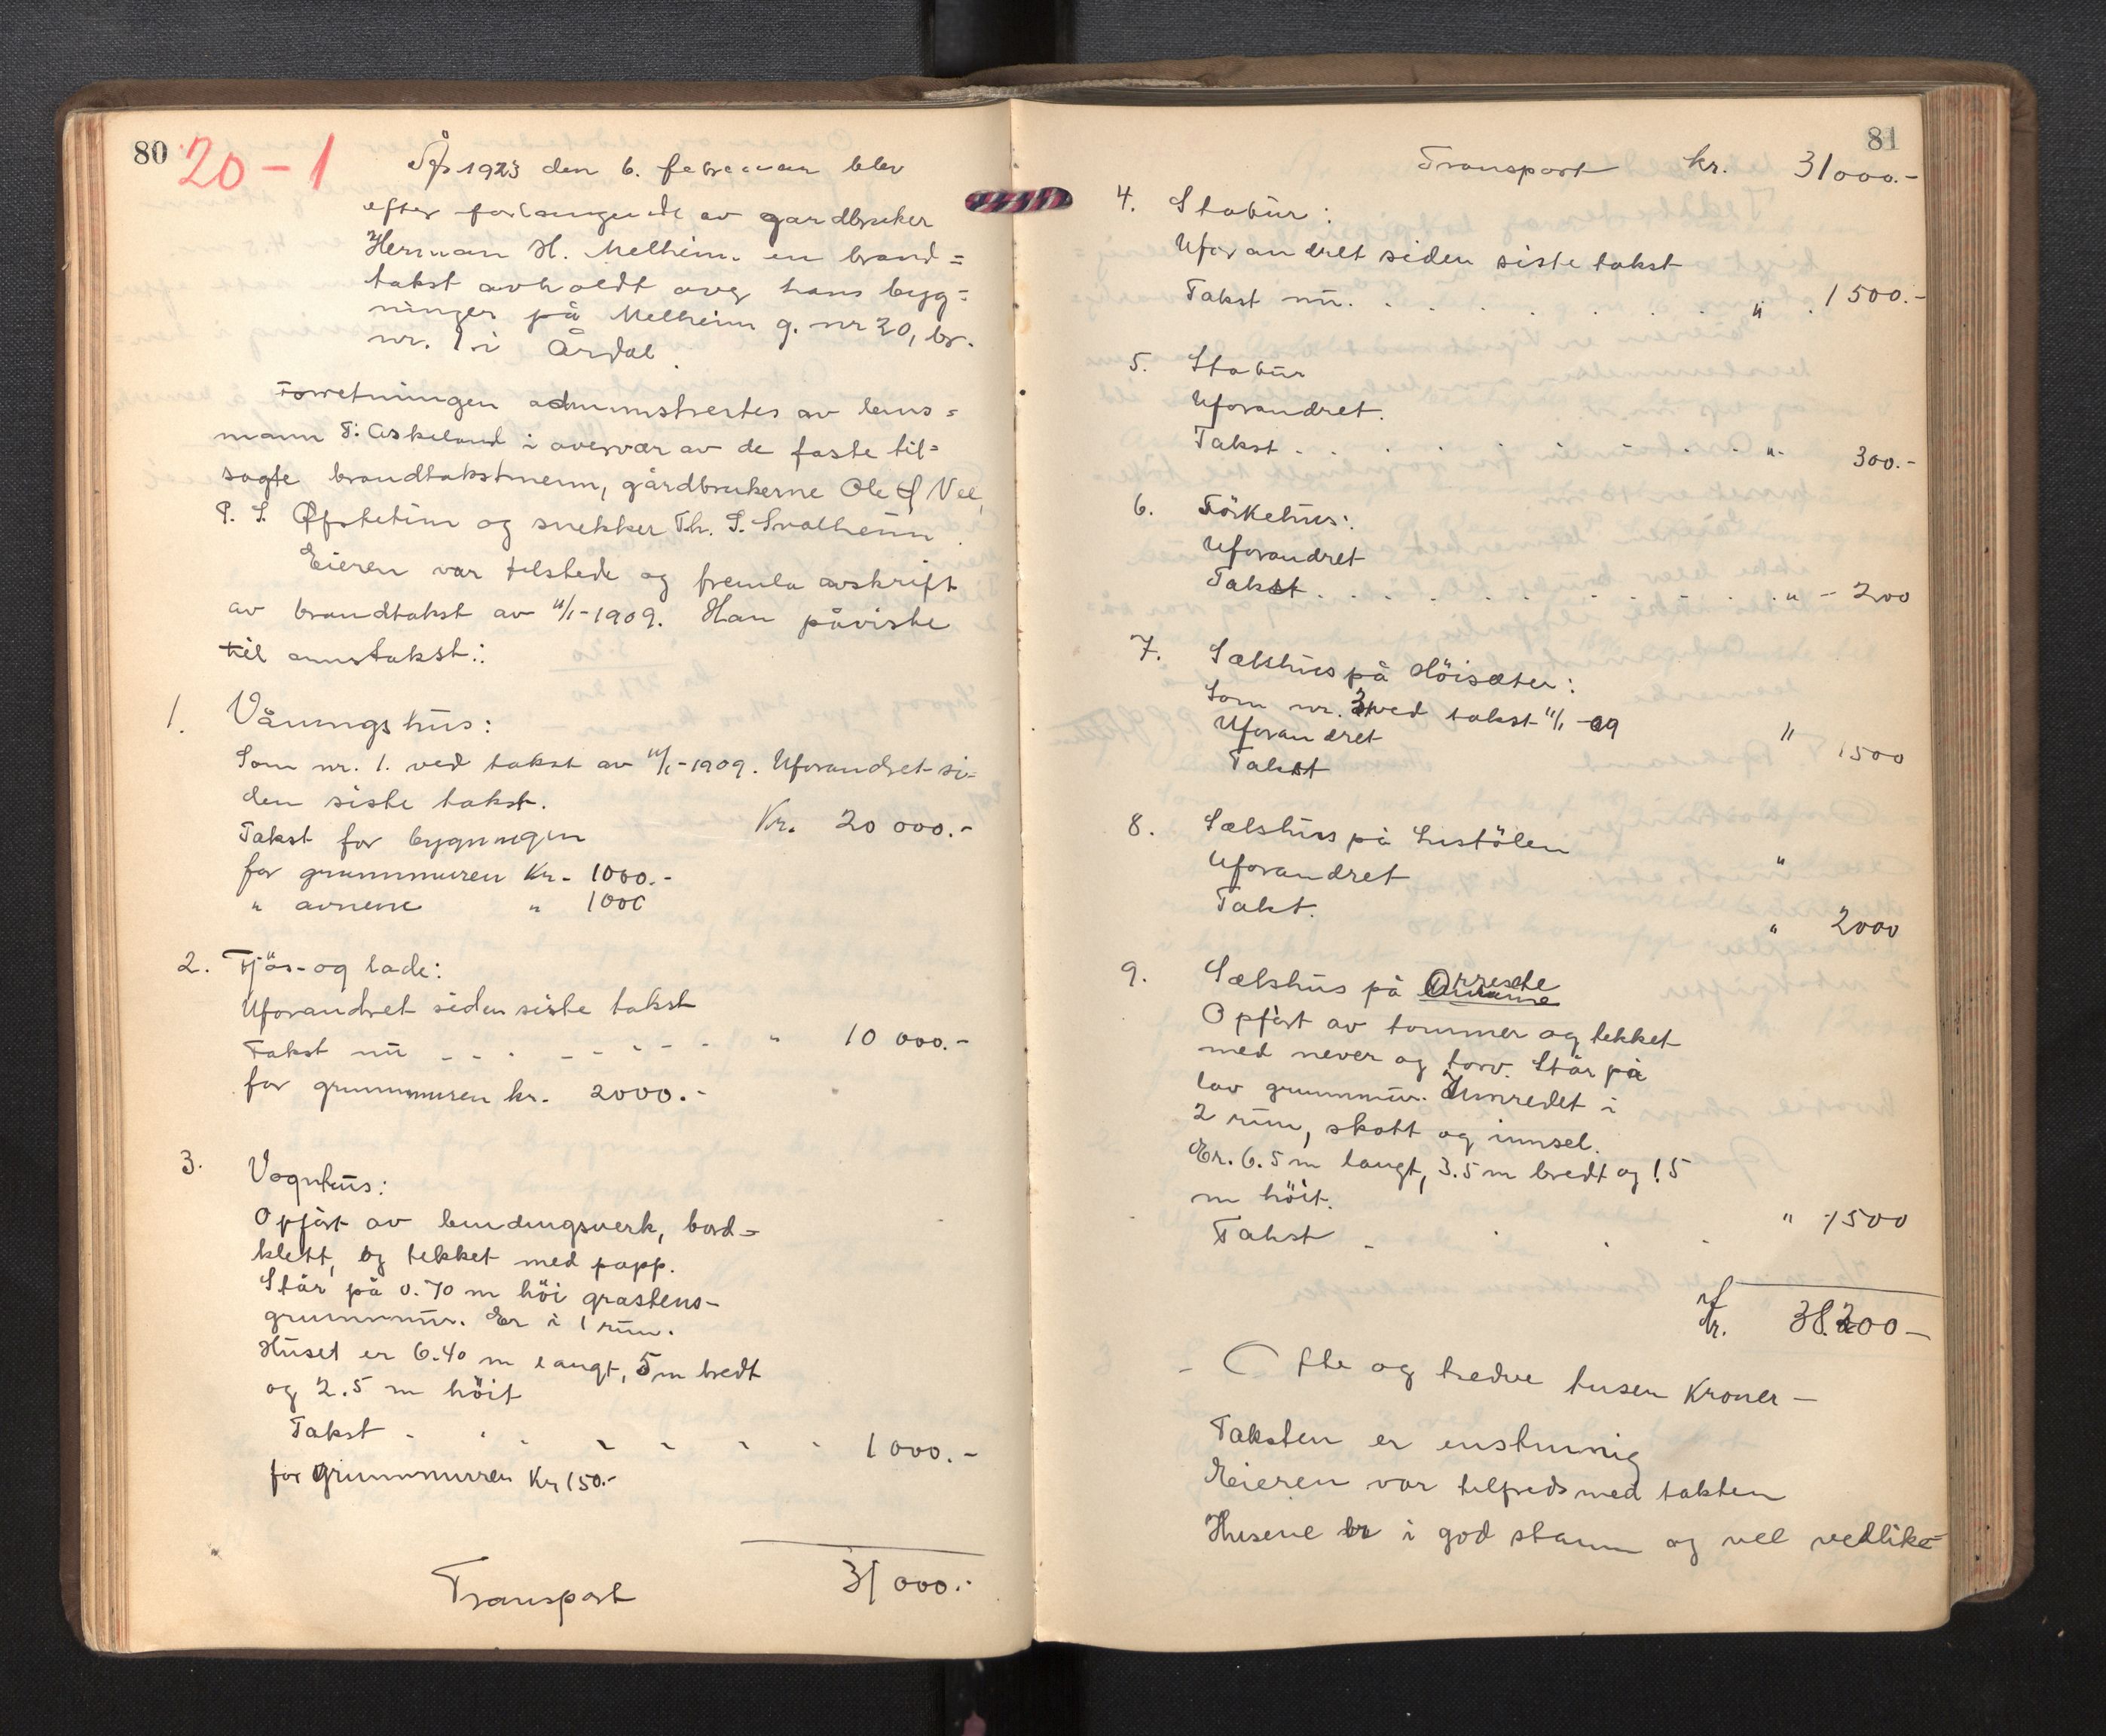 80
20-1
År 1923 den 6. februar blev
efter forlangende av gardbruker
Herman H. Melheim en brand=
takst avholdt over hans byg=
ninger på Melheim g. nr 20, br.
nr. 1 i Årdal.
Forretningen administrertes av lens=
mann T. Askeland i overvær av de faste til=
sagte brandtakstmenn, gårdbrukerne Ole Vee,
P. S. Øfstetun og snekker Th. S. Svalheim.
Eieren var tilstede og fremla avskrift
av brandtakst av 11/1-1909. Han påviste
til omtakst:
1. Våningshus:
Som nr. 1. ved takst av 11/1-1909. Uforandret si-
den siste takst.
Takst for bygningen Kr. 20 000.-
for grunnmuren Kr. 1000.-
" ovnene " 1000
2. Fjös- og lade:
Uforandret siden siste takst
Takst nu " 10 000.-
for grunnmuren kr. 2000.-
3. Vognhus:
Opfört av bindingsverk, bord=
klett, og tekket med papp.
Står på 0.70 m höi grastens-
grunnmur. Er i 1 rum.
Huset er 6.40 m langt, 5 m bredt
og 2.5 m höit
Takst 1 000.-
for grunnmuren Kr 150.-
Transport 31 000.-
81
Transport kr. 31000.-
4. Stabur:
Uforandret siden siste takst
Takst nu. " 1500.-
5. Stabur
Uforandret.
Takst " 300.-
6. Törkehus:
Uforandret
Takst " - 200
7. Sælshus på Höisæter:
Som nr. 3 ved takst 11/1-09
Uforandret " 1500
Takst
8. Sælshus på Lustölen
Uforandret "
Takt. " 2000
9. Sælshus på
Opfört av tommer og tekket
med never og torv. Står på
lav grunnmur. Innredet i
2 rum, skott og innsel.
Er. 6.5 m langt, 3.5 m bredt og 1.5
m höit.
Takst " 1500
kr. 38.200-
- Otte og tredve tusen Kroner -
Taksten er enstemmig
Eieren var tilfreds med takten
Husene er i god stann og vel vedlike-